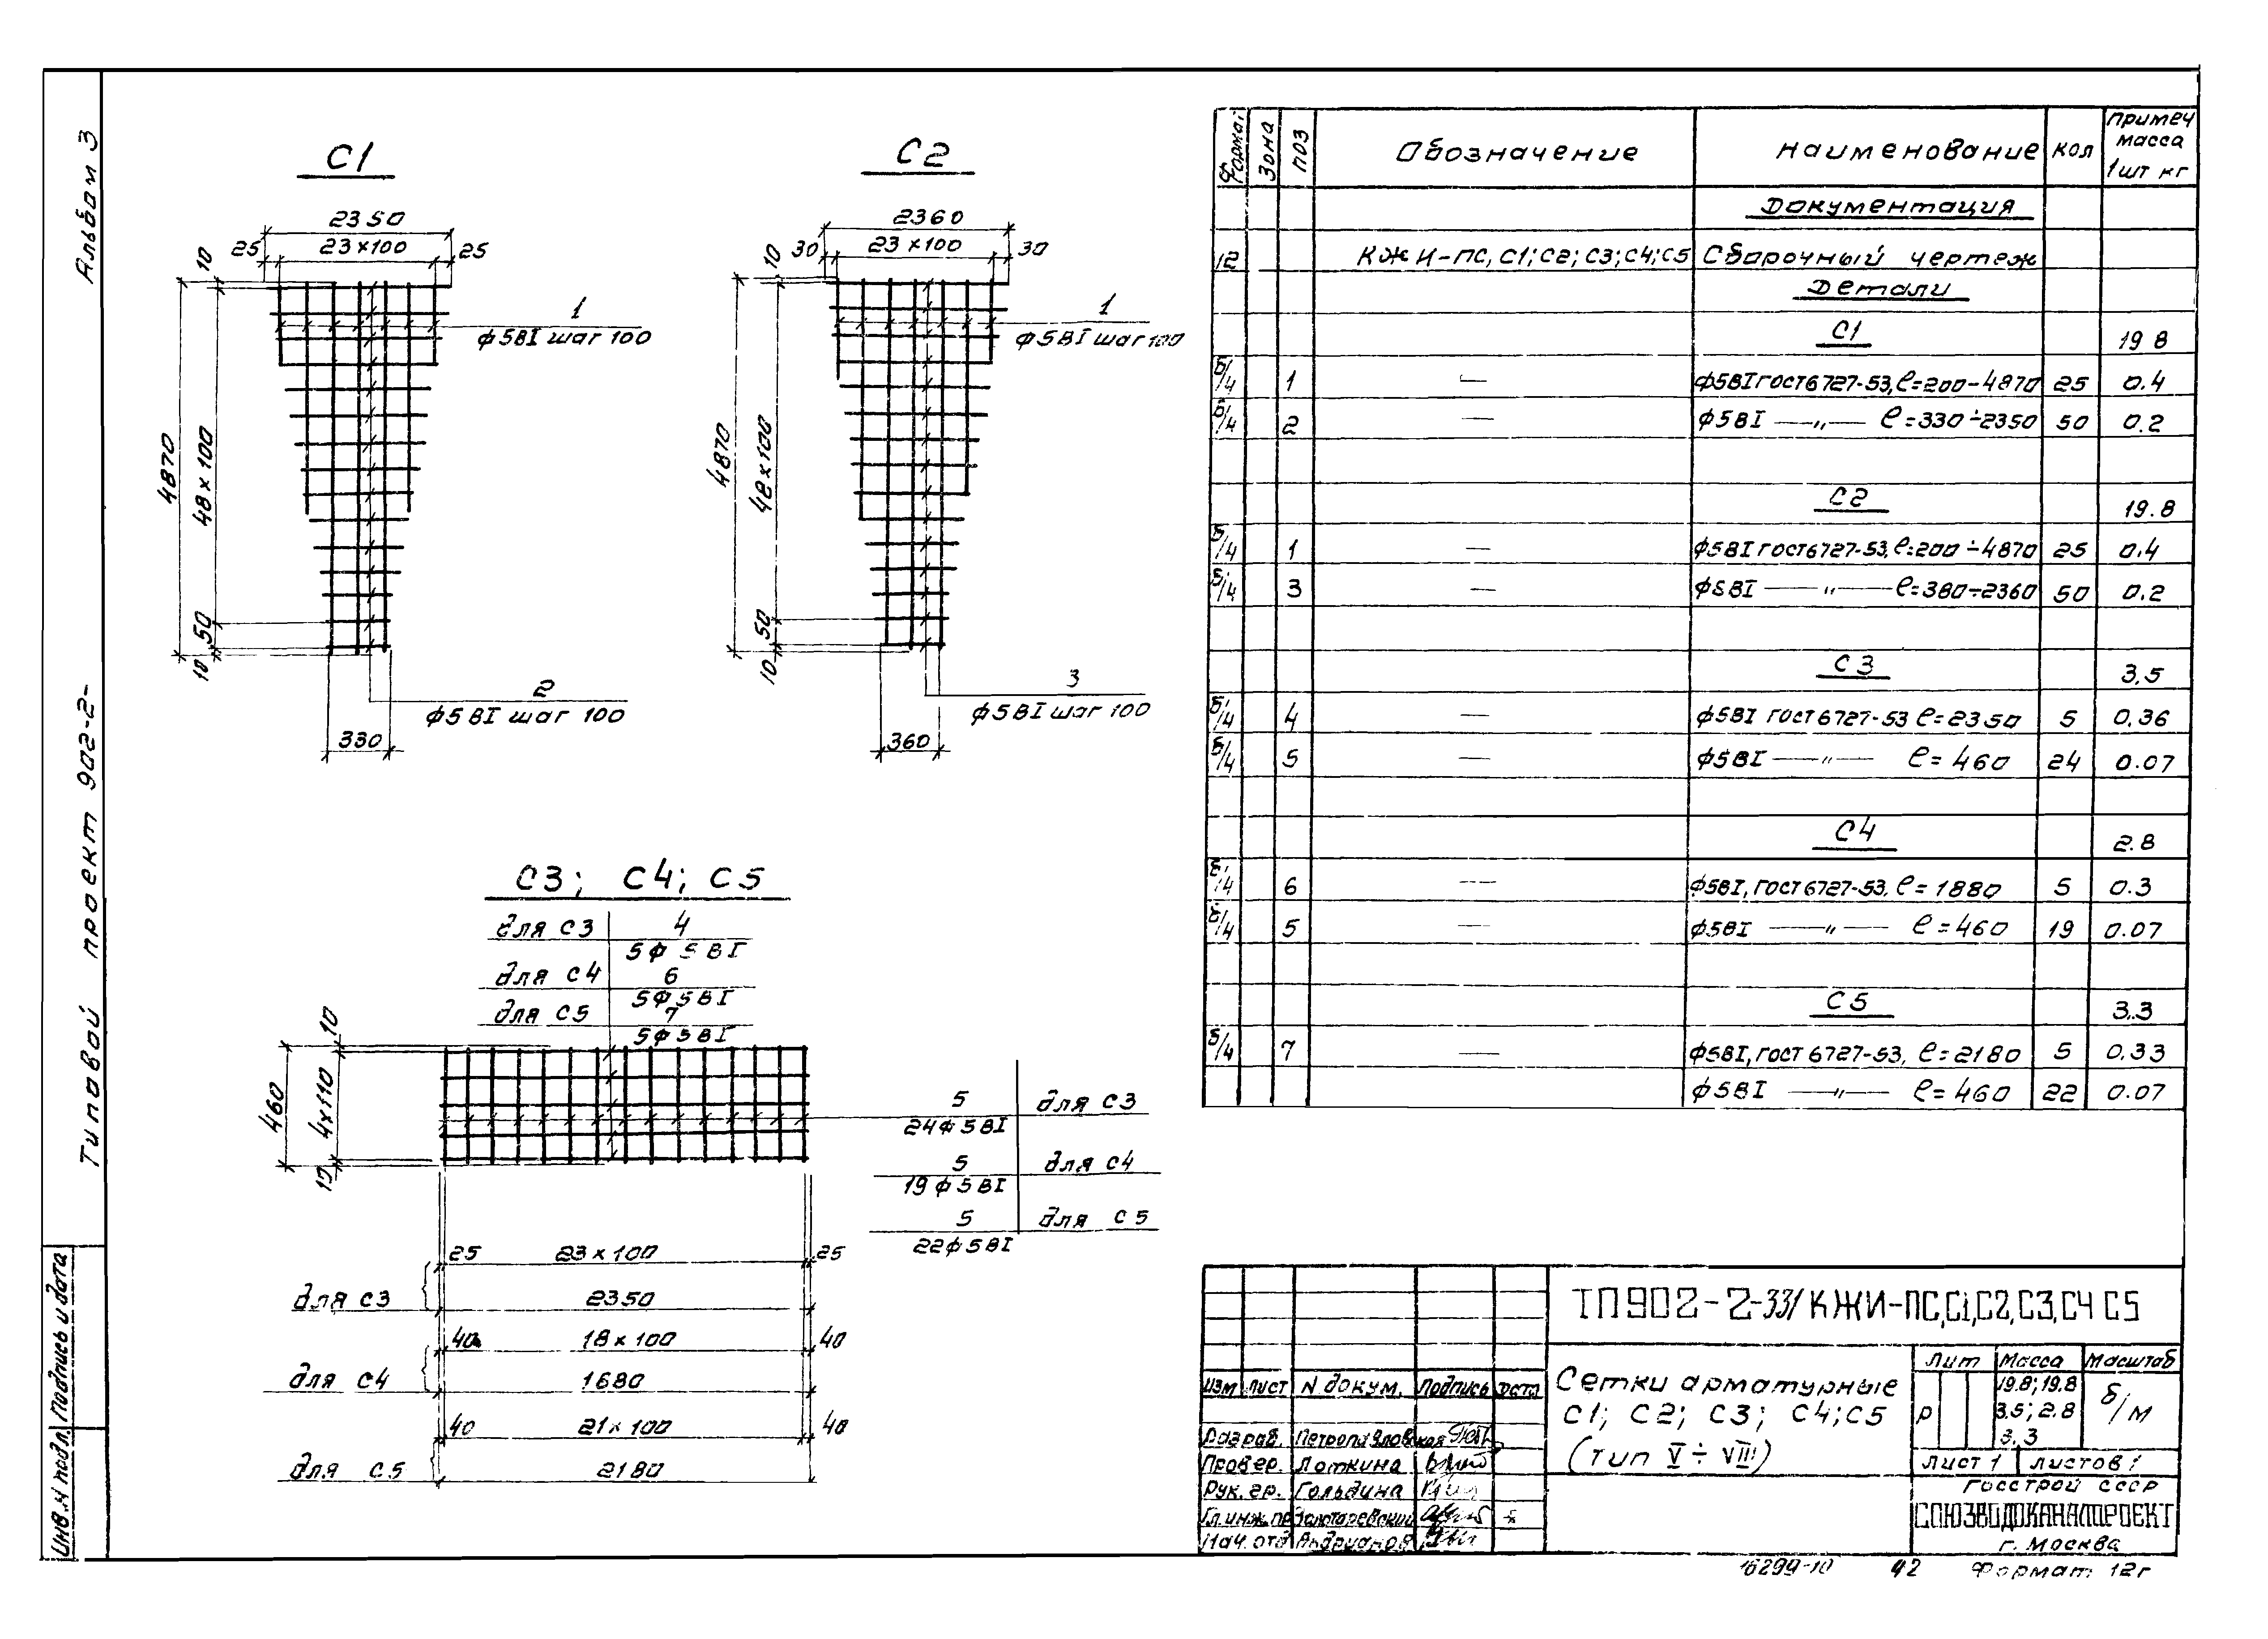 Альбом 3
Типовой проект 902-2-
Инв.N подл. Подпись и дата
С1
2350
25 23×100 25
10
4870
48×100
50
10
1
ф5ВI шаг 100
2
ф5ВI шаг 100
330
С2
2360
30 23×100 30
10
4870
48×100
50
10
1
ф5ВI шаг 100
3
ф5ВI шаг 100
360
С3; С4; С5
для С3 4
5ф5ВI
для С4 6
5ф5ВI
для С5 7
5ф5ВI
10
460
4×110
10
5 для С3
24ф5ВI
5 для С4
19ф5ВI
5 для С5
22ф5ВI
25 23×100 25
для С3 2350
40 18×100 40
для С4 1680
40 21×100 40
для С5 2180
Формат Зона ПОЗ Обозначение Наименование Кол Примеч масса 1шт кг
Документация
12 КЖИ-ПС, С1; С2; С3; С4; С5 Сборочный чертеж
Детали
С1 19 8
Б/4 1 — ф5ВI ГОСТ6727-53, ℓ=200-4870 25 0.4
Б/4 2 — ф5ВI —„— ℓ=330÷2350 50 0.2
С2 19.8
Б/4 1 — ф5ВI ГОСТ6727-53, ℓ=200÷4870 25 0.4
Б/4 3 — ф5ВI —„— ℓ=380÷2360 50 0.2
С3 3.5
Б/4 4 — ф5ВI ГОСТ6727-53 ℓ=2350 5 0.36
Б/4 5 — ф5ВI —„— ℓ=460 24 0.07
С4 2.8
Б/4 6 — ф5ВI, ГОСТ6727-53, ℓ=1880 5 0.3
Б/4 5 — ф5ВI —„— ℓ=460 19 0.07
С5 3.3
Б/4 7 — ф5ВI, ГОСТ 6727-53, ℓ=2180 5 0.33
ф5ВI —„— ℓ=460 22 0.07
ТП902-2-331 КЖИ-ПС,С1,С2,С3,С4 С5
Изм Лист N докум. Подпись Дата
Разраб. Петропавловская
Провер. Лоткина
Рук. гр. Гольдина
Гл.инж.пр Золотаревский
Нач. отд Андрианов
Сетки арматурные
С1; С2; С3; С4; С5
(тип V ÷ VIII)
Лит Масса Масштаб
Р 19.8; 19.8 3.5; 2.8 3.3 б/м
Лист 1 Листов 1
ГОССТРОЙ СССР
СОЮЗВОДОКАНАЛПРОЕКТ
г. Москва
16299-10 42 Формат 12г